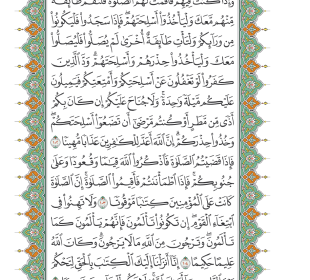 وَإِذَا كُنتَ فِيهِمْ فَأَقَمْتَ لَهُمُ ٱلصَّلَوٰةَ فَلْتَقُمْ طَآئِفَةٌ
مِّنْهُم مَّعَكَ وَلْيَأْخُذُوٓا۟ أَسْلِحَتَهُمْ فَإِذَا سَجَدُوا۟ فَلْيَكُونُوا۟
مِن وَرَآئِكُمْ وَلْتَأْتِ طَآئِفَةٌ أُخْرَىٰ لَمْ يُصَلُّوا۟ فَلْيُصَلُّوا۟
مَعَكَ وَلْيَأْخُذُوا۟ حِذْرَهُمْ وَأَسْلِحَتَهُمْ وَدَّ ٱلَّذِينَ
كَفَرُوا۟ لَوْ تَغْفُلُونَ عَنْ أَسْلِحَتِكُمْ وَأَمْتِعَتِكُمْ فَيَمِيلُونَ
عَلَيْكُم مَّيْلَةً وَٰحِدَةً وَلَا جُنَاحَ عَلَيْكُمْ إِن كَانَ بِكُمْ
أَذًى مِّن مَّطَرٍ أَوْ كُنتُم مَّرْضَىٰٓ أَن تَضَعُوٓا۟ أَسْلِحَتَكُمْ
وَخُذُوا۟ حِذْرَكُمْ إِنَّ ٱللَّهَ أَعَدَّ لِلْكَٰفِرِينَ عَذَابًا مُّهِينًا ١٠٢
فَإِذَا قَضَيْتُمُ ٱلصَّلَوٰةَ فَٱذْكُرُوا۟ ٱللَّهَ قِيَٰمًا وَقُعُودًا وَعَلَىٰ
جُنُوبِكُمْ فَإِذَا ٱطْمَأْنَنتُمْ فَأَقِيمُوا۟ ٱلصَّلَوٰةَ إِنَّ ٱلصَّلَوٰةَ
كَانَتْ عَلَى ٱلْمُؤْمِنِينَ كِتَٰبًا مَّوْقُوتًا ١٠٣ وَلَا تَهِنُوا۟ فِى
ٱبْتِغَآءِ ٱلْقَوْمِ إِن تَكُونُوا۟ تَأْلَمُونَ فَإِنَّهُمْ يَأْلَمُونَ كَمَا
تَأْلَمُونَ وَتَرْجُونَ مِنَ ٱللَّهِ مَا لَا يَرْجُونَ وَكَانَ ٱللَّهُ
عَلِيمًا حَكِيمًا ١٠٤ إِنَّآ أَنزَلْنَآ إِلَيْكَ ٱلْكِتَٰبَ بِٱلْحَقِّ لِتَحْكُمَ